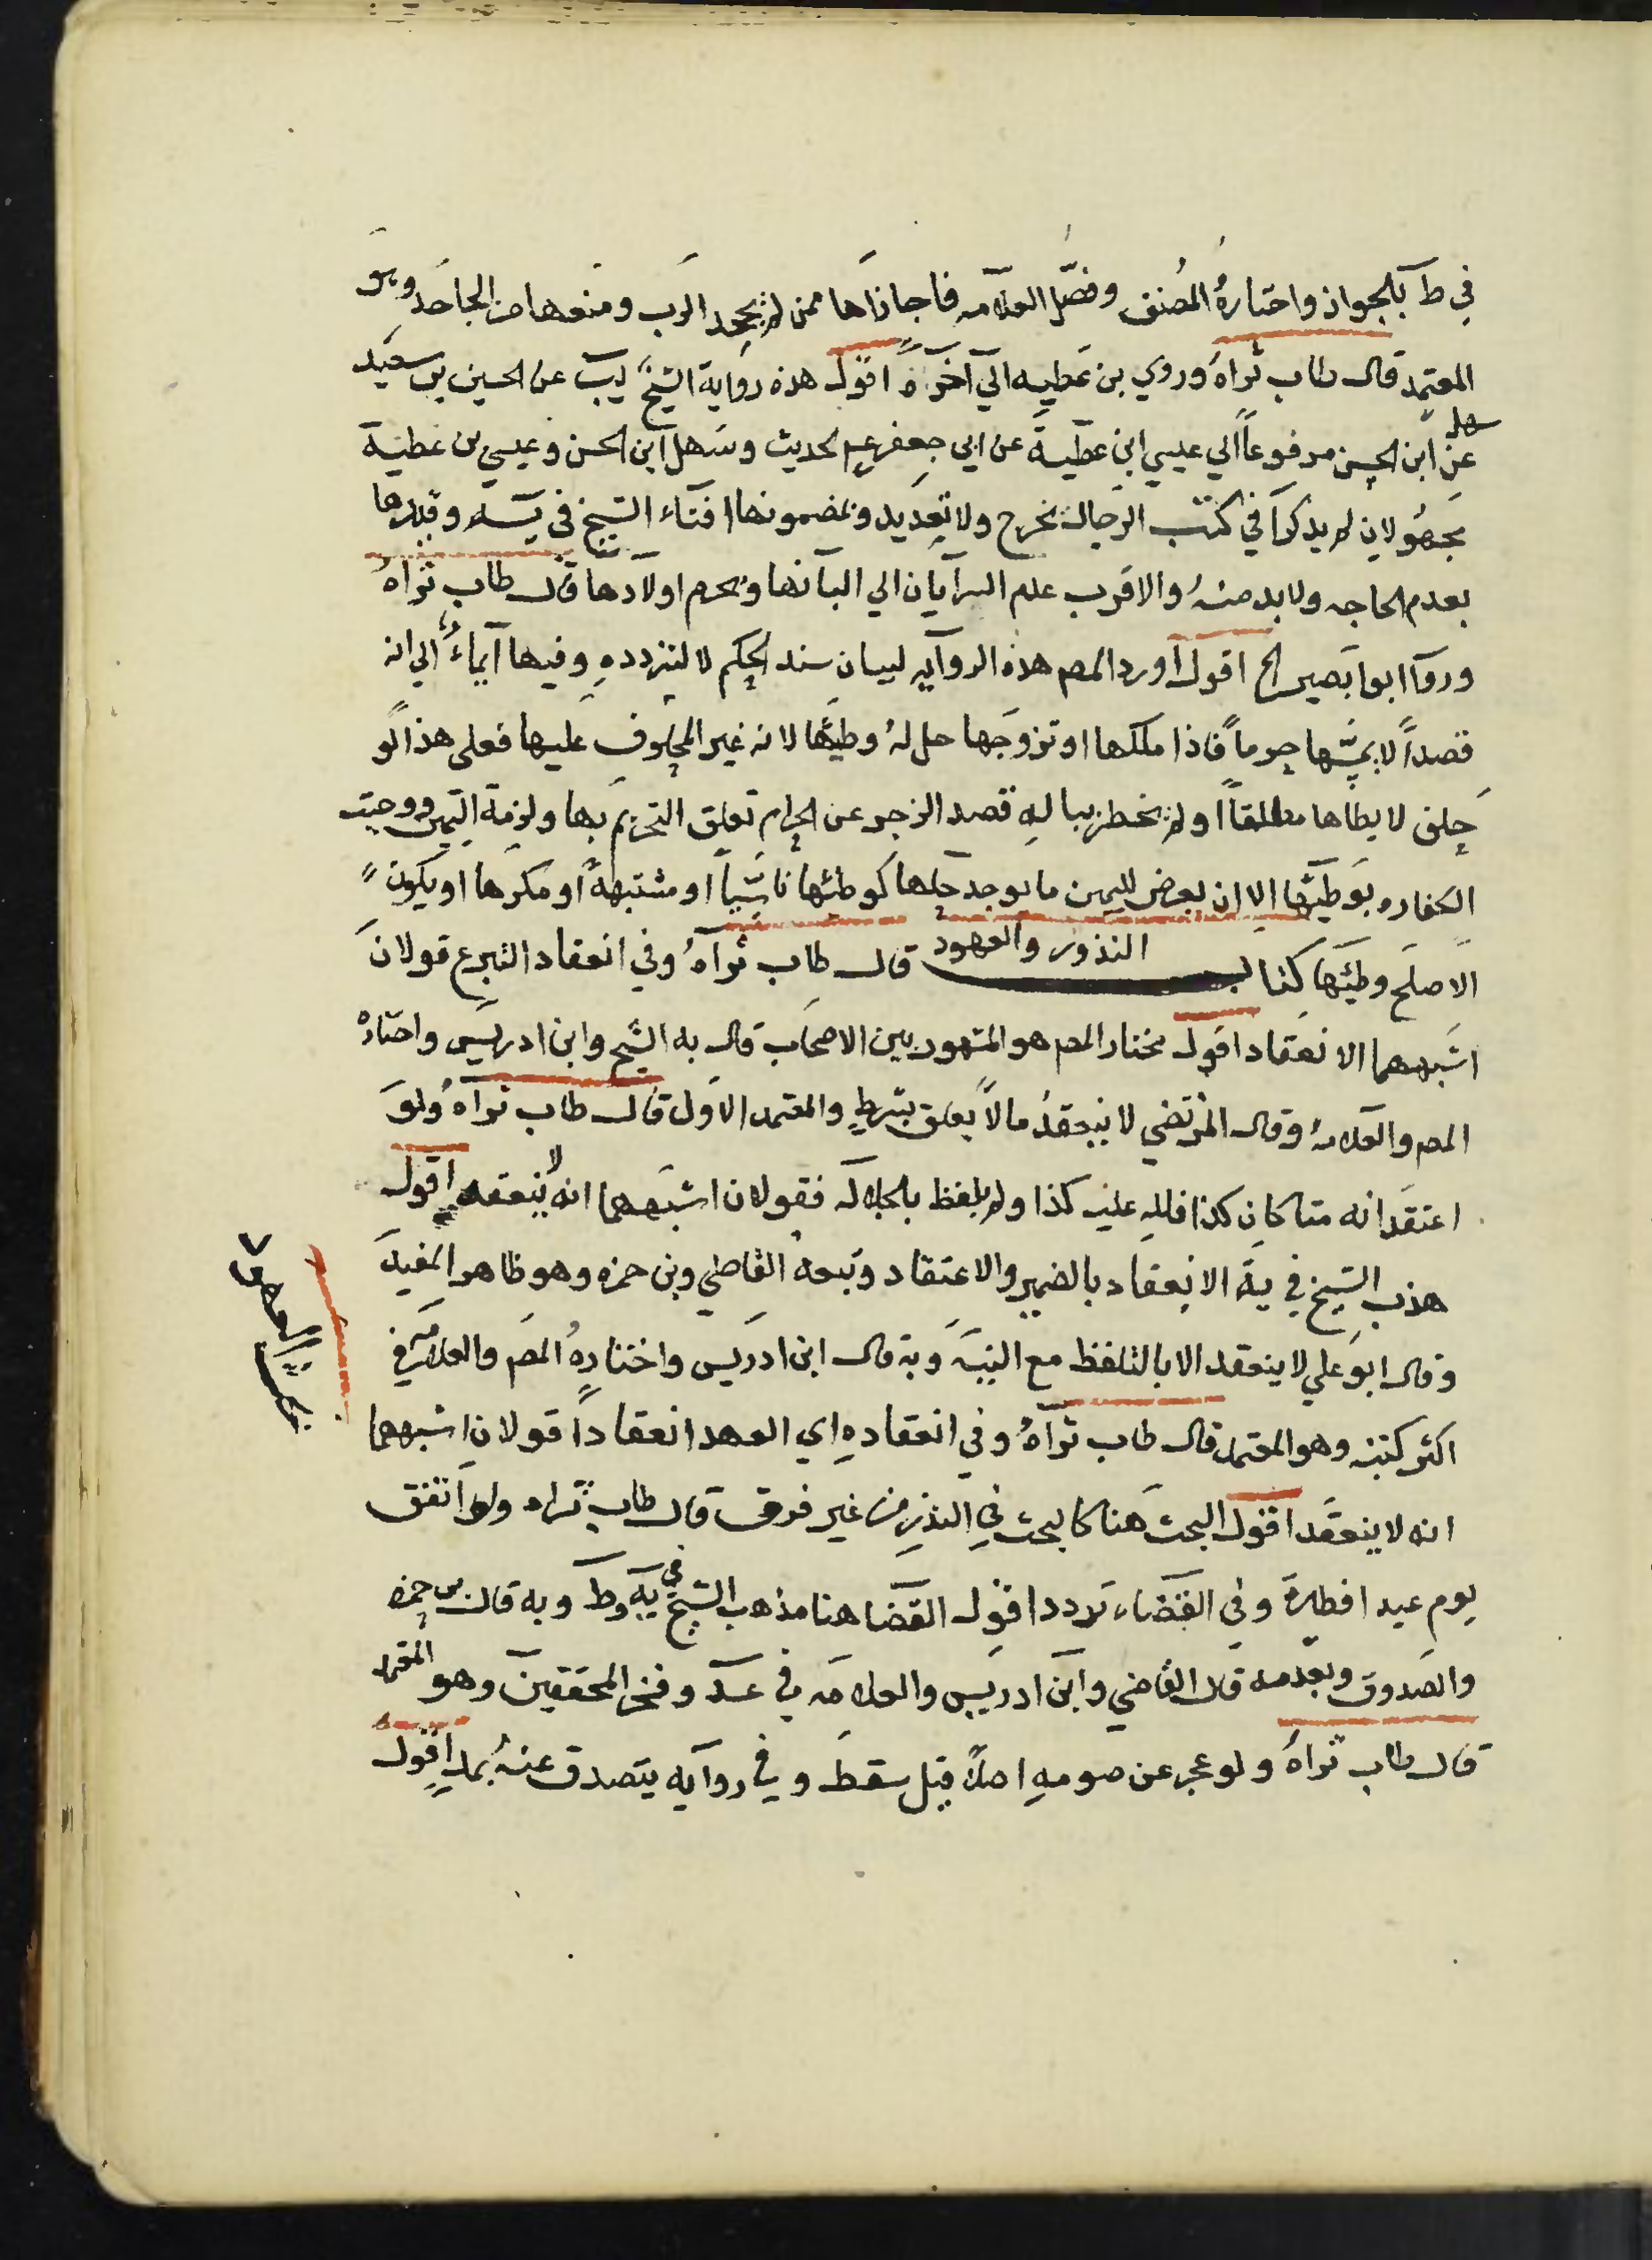 في ط بالجواز واختاره المصنف وفصّل العلامه فاجازاها ممن لم يجحد الرب ومنعها من الجاحد وهو
المعتمد قال طاب ثراهُ وروي بن عطيه الي آخره اقول هذه رواية الشيخ يب عن الحسين بن سعيد
عن سهل ابن الحسن مرفوعاً الي عيسي ابن عطية عن ابي جعفر ع الحديث وسهل ابن الحسن وعيسي بن عطية
مجهولان لم يذكرا في كتب الرجال بجرح ولا تعديد وبمضمونها افتاء الشيخ في يه وقيدها
بعدم الحاجه ولا بد منهُ والاقرب عدم السرايان الي البانها وبحرم اولادها قال طاب ثراهُ
وروآ ابوا بصير الخ اقول اورد المصم هذه الروآيه لبيان سند الحكم لا لتردده وفيها آيماءٌ الي انه
قصداً لا يمسّها حرماً فاذا ملكها او تزوجها حل لهُ وطيُها لانه غير المحلوف عليها فعلي هذا لو
حلف لا يطاها مطلقاً او لم يخطر بباله قصد الزجر عن الحرام تعلق التحريم بها ولزمة اليمين ووجبت
الكفاره بوطيّها الا ان يعرض لليمين ما يوجد حلها كوطئها ناسياً او مشتبهةً او مكرها او يكون
الاصلح وطيئها كتاب النذور والعهود قال طاب ثرآهُ وفي انعقاد التبرع قولان
اشبههما الانعقاد اقول مختار المصم هو المشهور بين الاصحاب قال به الشيخ وابن ادريس واختاره
المصم والعلامهُ وقال المرتضي لا ينعقدُ مالاً يعلق بشرطٍ والمعتمد الاول قال طاب ثرآهُ ولو
اعتقد انه متا كان كذا فلله عليه كذا ولم يلفظ بالجلاله فقولان اشبههما انه لا ينعقد اقول
هذب الشيخ في ية الانعقاد بالضمير والاعتقاد وتبعهُ القاضي وبن حمزه وهو ظاهر المفيد
وقال ابو علي لا ينعقد الا بالتلفظ مع النيّه وبه قال ابن ادريس واختارهُ المصَم والعلامه في
اكثر كتبه وهو المعتمد قال طاب ثرآهُ وفي انعقاده اي العهد انعقاداً قولان اشبههما
انه لا ينعقد اقول البحث هنا كالبحث في النذر من غير فرق قال طاب ثراه ولو اتفق
يوم عيد افطرهَ وفي القضاء تردد اقول القضا هنا مذهب الشيخ في يه وط وبه قال بن حمزه
والصدوق وبعدمه قال القاضي وابن ادريس والعلامه في عد وفخر المحققين وهو المعتمد
قال طاب ثراهُ ولو عجز عن صومهِ اصلاً قيل سقط وفي روآيه يتصدق عنهُ بمد اقول
بحث العهود